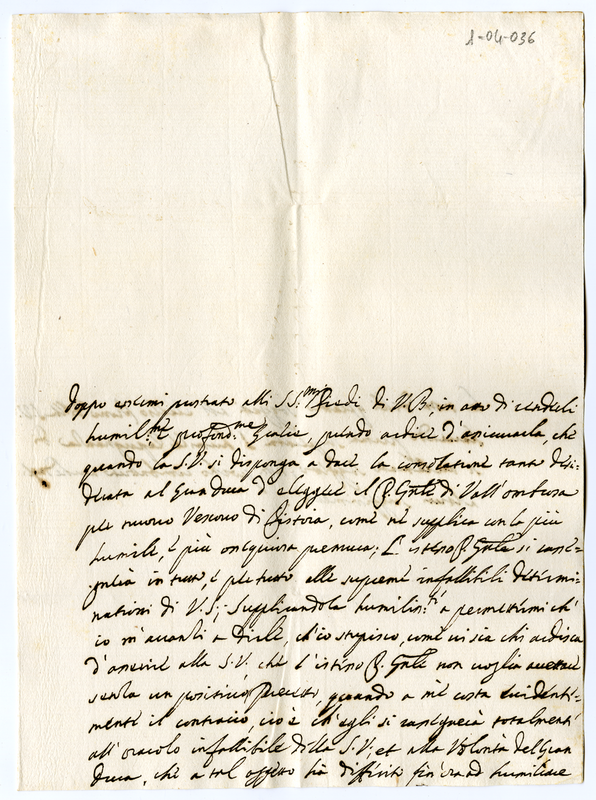 1-04-036
Doppo essermi prostrato alli SS.mi Piedi di V.B., in atto di renderli
humil.me e profond.me Gratie, prendo ardire d'assicurarla, che
quando la S.V. si disponga a dare la consolatione tanto desi=
derata al Gran Duca d'eleggere il P. Gnle di Vall'ombrosa
per nuovo Vescovo di Pistoia, come ne supplica con la più
humile, e più ossequiosa premura; L'istesso P. Gnle si rasse=
gnerà in tutto, e per tutto alle supreme infallibili determi=
nationi di V.S.; Supplicandola humiliss.te a permettermi ch'
io m'avanzi a Dirle, ch'io stupisco, come vi sia chi ardisca
d'asserire alla S.V., che l'istesso P. Gnle non voglia accettare
senza un positivo Precetto, quando a me costa evidente=
mente il contrario, cioè ch'egli si rassegnerà totalmente
all'oracolo infallibile della S.V. et alla Volontà del Gran
Duca, che a tal effetto ha differito fin'ora ad humiliare